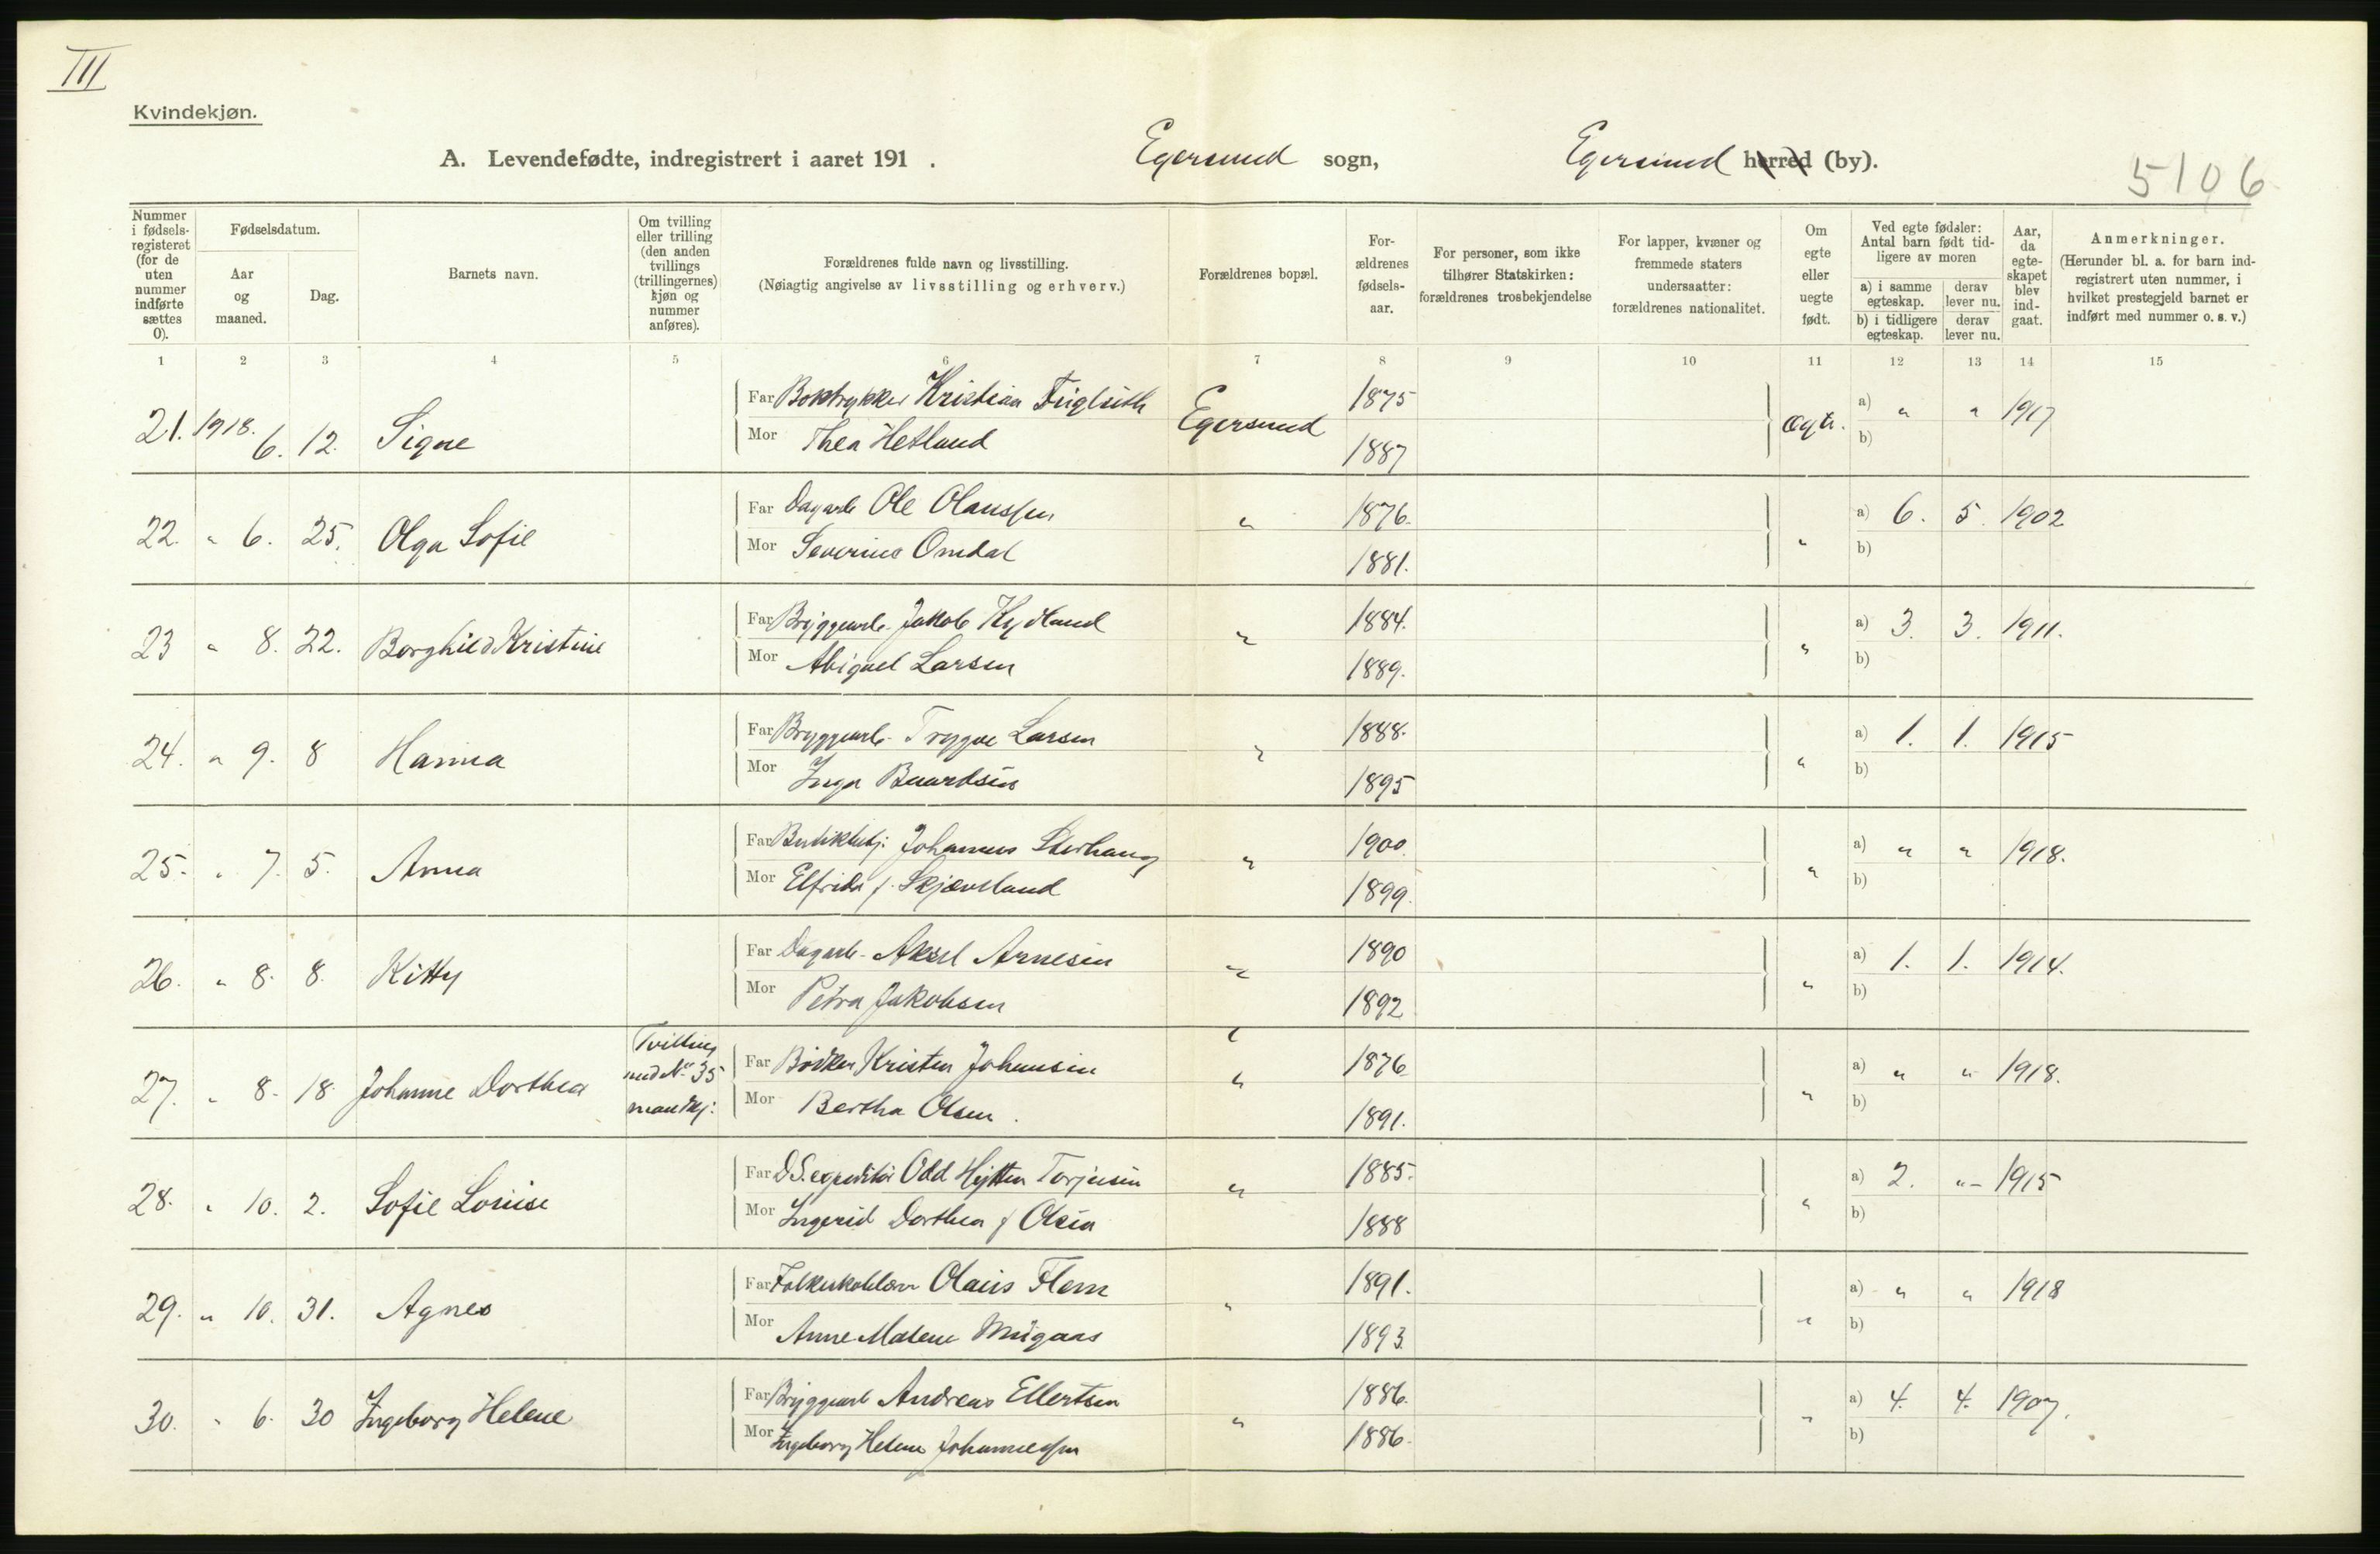 III
Kvindekjøn.
A. Levendefødte, indregistrert i aaret 191 . Egersund sogn, Egersund herred (by).
5106
Nummer i fødsels-registeret (for de uten nummer indførte sættes 0).
Fødselsdatum.
Aar og maaned.
Dag.
Barnets navn.
Om tvilling eller trilling (den anden tvillings (trillingernes) kjøn og nummer anføres).
Forældrenes fulde navn og livsstilling.
(Nøiagtig angivelse av livsstilling og erhverv.)
Forældrenes bopæl.
For-ældrenes fødsels-aar.
For personer, som ikke tilhører Statskirken: forældrenes trosbekjendelse
For lapper, kvæner og fremmede staters undersaatter: forældrenes nationalitet.
Om egte eller uegte født.
Ved egte fødsler: Antal barn født tid-ligere av moren
a) i samme egteskap. derav lever nu.
b) i tidligere egteskap. derav lever nu.
Aar, da egte-skapet blev ind-gaat.
Anmerkninger.
(Herunder bl. a. for barn ind-registrert uten nummer, i hvilket prestegjeld barnet er indført med nummer o. s. v.)
1 2 3 4 5 6 7 8 9 10 11 12 13 14 15
21. 1918. 6. 12. Signe Far Boktrykker Kristian Fuglseth Egersund 1875 egte. a) " " 1917
Mor Thea Hetland 1887 b)
22. " 6. 25. Olga Sofie Far Dagarb Ole Olaussen " 1876. " a) 6. 5. 1902
Mor Severine Omdal 1881. b)
23 " 8. 22. Borghild Kristine Far Bryggearb. Jakob Kydland " 1884. " a) 3. 3. 1911.
Mor Abigael Larsen 1889. b)
24. " 9. 8 Hanna Far Bryggearb. Trygve Larsen " 1888. " a) 1. 1. 1915
Mor Inga Baardsen 1895 b)
25. " 7. 5. Anna Far Butikbetj. Johannes " 1900. " a) " " 1918.
Mor Elfrida f. Skjævesland 1899. b)
26. " 8. 8. Kitty Far Dagarb. Aksel Arnesen " 1890 " a) 1. 1. 1914.
Mor Petra Jakobsen 1892 b)
27. " 8. 18. Johanne Dorthea Tvilling med No 35 mandkj: Far Bødker Kristen Johansen " 1876. " a) " " 1918.
Mor Bertha Olsen. 1891. b)
28. " 10. 2. Sofie Louise Far D.S.expeditør Odd Hytten Torjusen " 1885. " a) 2. "- 1915
Mor Ingerid Dorthea f Olsen 1888 b)
29. " 10. 31. Agnes Far Folkeskolelærer Olaus Flem " 1891. " a) " " 1918
Mor Anne Malene Mugaas 1893. b)
30. " 6. 30 Ingeborg Helene Far Bryggearb Andreas Ellertsen " 1886. " a) 4. 4. 1907.
Mor Ingeborg Helene Johannessen 1886. b)